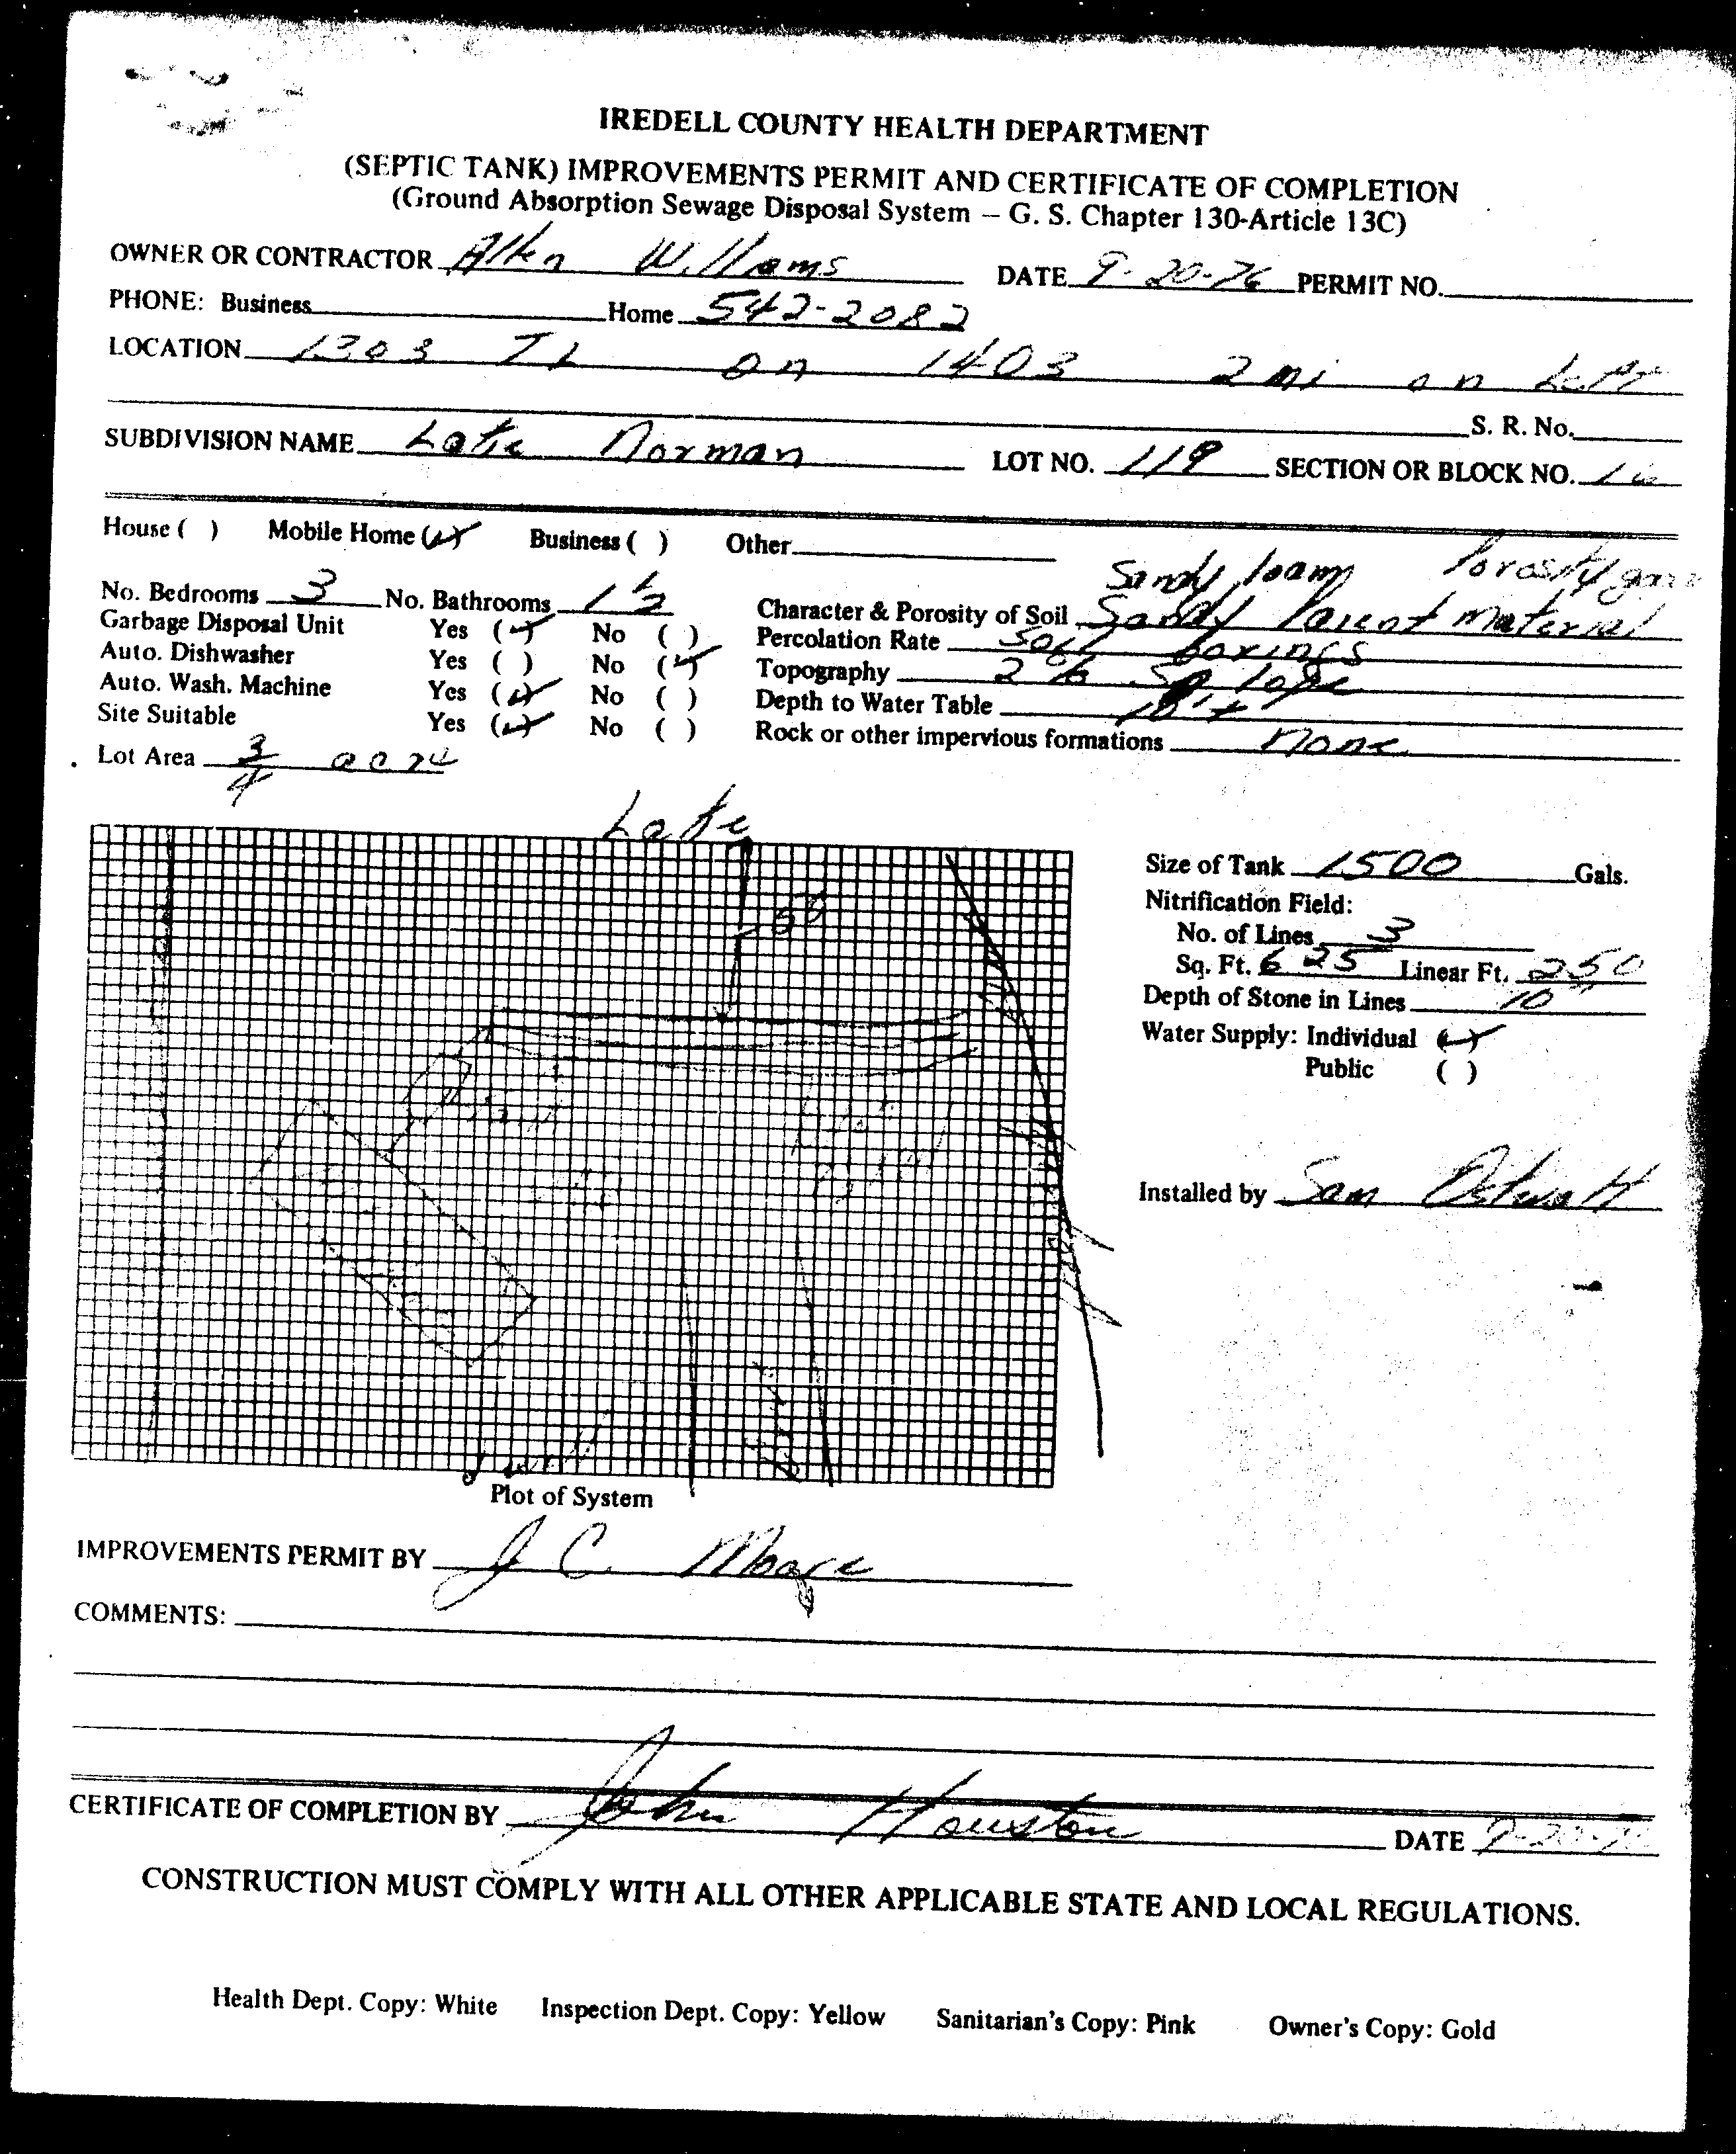 IREDELL COUNTY HEALTH DEPARTMENT
(SEPTIC TANK) IMPROVEMENTS PERMIT AND CERTIFICATE OF COMPLETION
(Ground Absorption Sewage Disposal System – G. S. Chapter 130-Article 13C)
OWNER OR CONTRACTOR Allen Williams DATE 9-20-76 PERMIT NO.
PHONE: Business Home 542-2082
LOCATION 1303 TL on 1403 2 mi on Left
S. R. No.
SUBDIVISION NAME Lake Norman LOT NO. 119 SECTION OR BLOCK NO. 16
House ( ) Mobile Home (✓) Business ( ) Other
Sandy loam Porosity good
No. Bedrooms 3 No. Bathrooms 1 1/2 Character & Porosity of Soil Sandy Parent Material
Garbage Disposal Unit Yes (✓) No ( ) Percolation Rate Soil borings
Auto. Dishwasher Yes ( ) No (✓) Topography 2% Slope
Auto. Wash. Machine Yes (✓) No ( ) Depth to Water Table 10'+
Site Suitable Yes (✓) No ( ) Rock or other impervious formations None
Lot Area 3/4 acre
Lake
50'
Size of Tank 1500 Gals.
Nitrification Field:
No. of Lines 3
Sq. Ft. 625 Linear Ft. 250
Depth of Stone in Lines 10"
Water Supply: Individual (✓)
Public ( )
Installed by Sam Ostwalt
Plot of System
IMPROVEMENTS PERMIT BY J C Moore
COMMENTS:
CERTIFICATE OF COMPLETION BY John Houston DATE 9-20-76
CONSTRUCTION MUST COMPLY WITH ALL OTHER APPLICABLE STATE AND LOCAL REGULATIONS.
Health Dept. Copy: White Inspection Dept. Copy: Yellow Sanitarian's Copy: Pink Owner's Copy: Gold